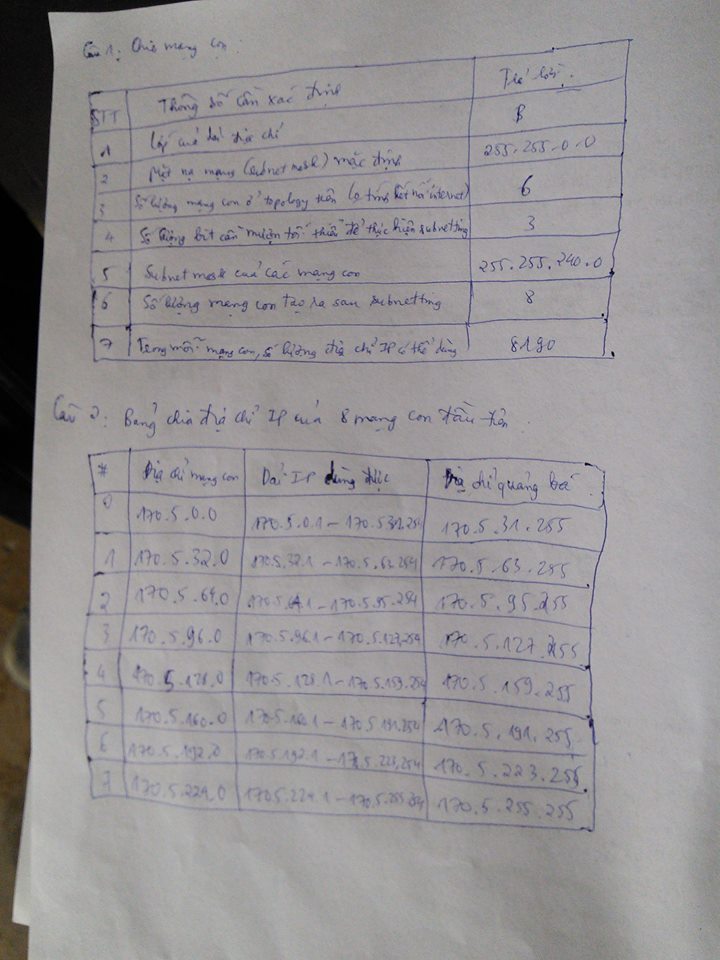 Câu 1: Chia mạng con:
STT Thông số cần xác định Trả lời
1 Lớp của dải địa chỉ B
2 Mặt nạ mạng (subnet mask) mặc định 255.255.0.0
3 Số lượng mạng con ở topology trên (o tính kết nối internet) 6
4 Số lượng bit cần mượn tối thiểu để thực hiện subnetting 3
5 Subnet mask của các mạng con 255.255.240.0
6 Số lượng mạng con tạo ra sau subnetting 8
7 Trong mỗi mạng con, số lượng địa chỉ IP có thể dùng 8190
Câu 2: Bảng chia địa chỉ IP của 8 mạng con đầu tiên
# Địa chỉ mạng con Dải IP dùng được Địa chỉ quảng bá
0 170.5.0.0 170.5.0.1 - 170.5.31.254 170.5.31.255
1 170.5.32.0 170.5.32.1 - 170.5.63.254 170.5.63.255
2 170.5.64.0 170.5.64.1 - 170.5.95.254 170.5.95.255
3 170.5.96.0 170.5.96.1 - 170.5.127.254 170.5.127.255
4 170.5.128.0 170.5.128.1 - 170.5.159.254 170.5.159.255
5 170.5.160.0 170.5.160.1 - 170.5.191.254 170.5.191.255
6 170.5.192.0 170.5.192.1 - 170.5.223.254 170.5.223.255
7 170.5.224.0 170.5.224.1 - 170.5.255.254 170.5.255.255